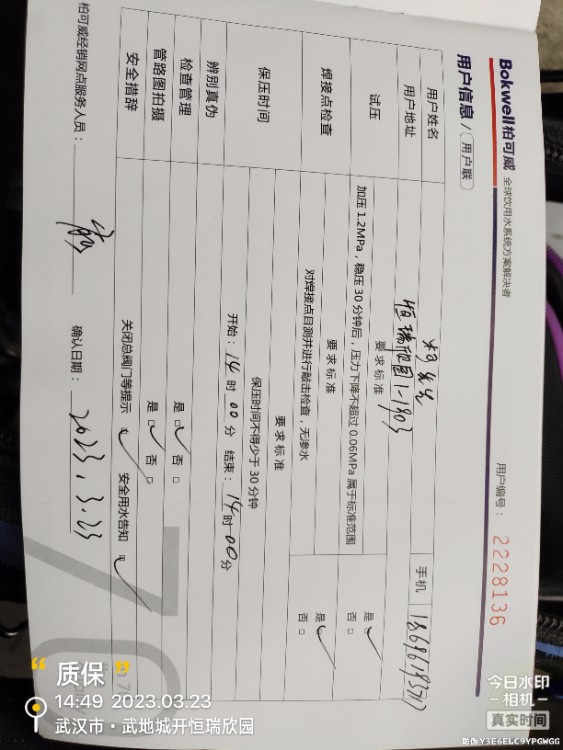 Bokwell柏可威 全球饮用水系统方案解决者
用户信息 / 用户联
用户编号： 2228136
用户姓名
用户地址 恒瑞欣园1-1903
手机
试压
要求标准
加压 1.2MPa，稳压 30 分钟后，压力下降不超过 0.06MPa 属于标准范围
是 □ 否 □
焊接点检查
要求标准
对焊接点目测并进行敲击检查，无渗水
是 □ 否 □
保压时间
要求标准
保压时间不得少于 30 分钟
开始：14 时 00 分 结束：14 时 00 分
辨别真伪
检查管理 是 □ 否 □
管路图拍摄 是 □ 否 □
安全措辞 关闭总阀门等提示 □ 安全用水告知 □
柏可威经销网点服务人员： 确认日期：2023.3.23
质保
14:49 2023.03.23
武汉市·武地城开恒瑞欣园
今日水印
相机
真实时间
防伪 Y3E6ELC9YPGWGG